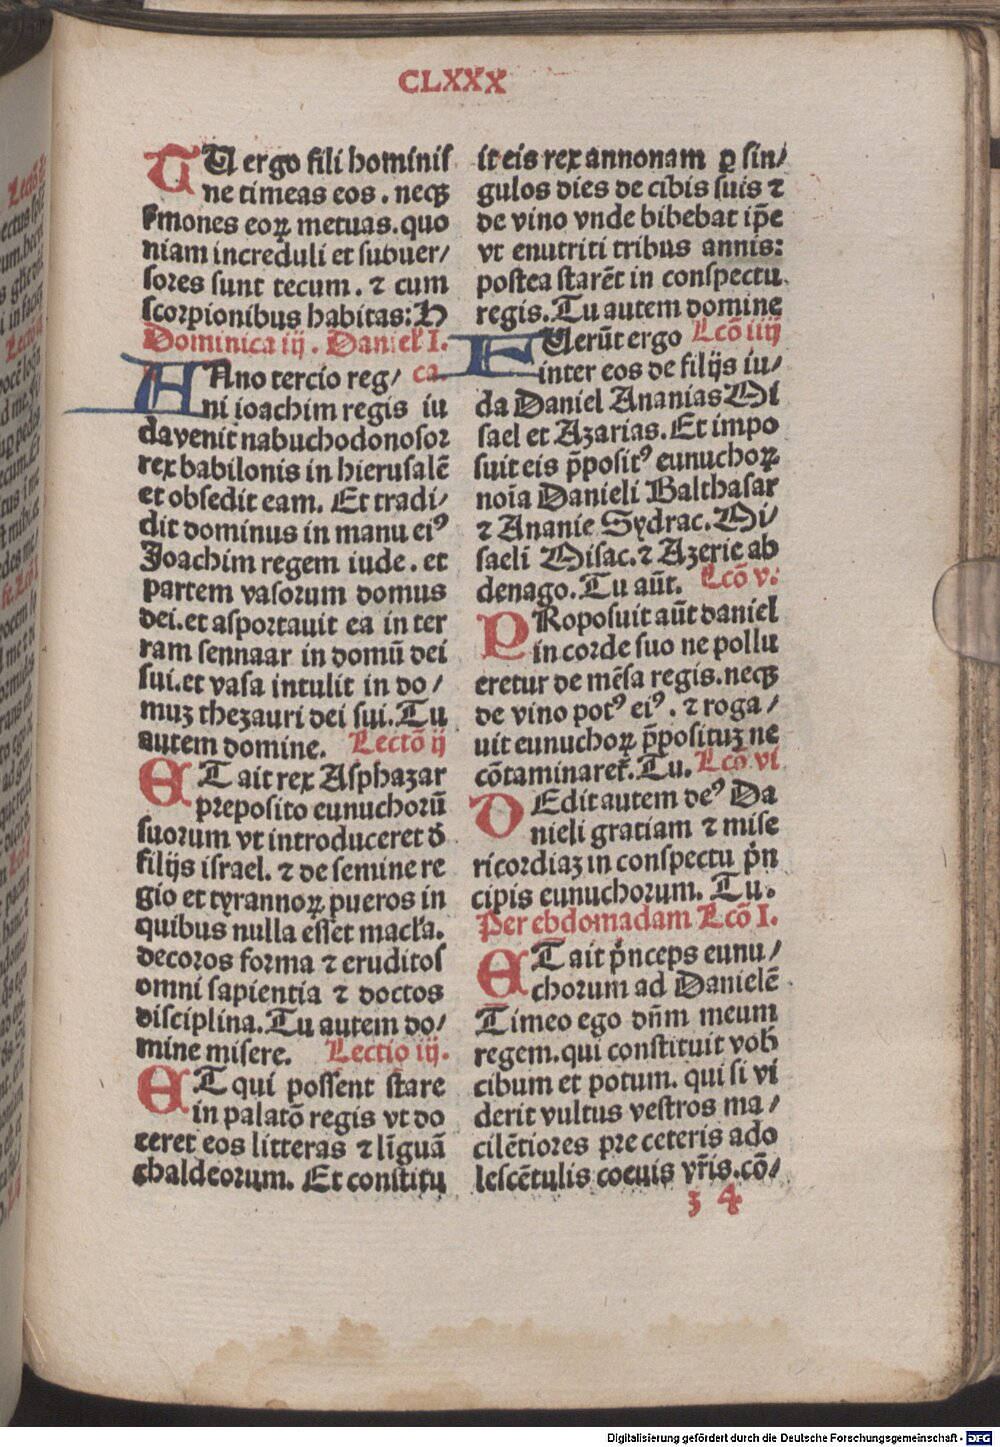 CLXXX
TU ergo fili hominis
ne timeas eos . neqꝫ
ſmones eoꝝ metuas. quo
niam increduli et subuer/
sores sunt tecum . ⁊ cum
scorpionibus habitas: H
Dominica iij . Daniel̕ I.
ANno tercio reg/ ca.
ni ioachim regis iu
da venit nabuchodonosor
rex babilonis in hierusalē
et obsedit eam. Et tradi/
dit dominus in manu eiꝰ
Joachim regem iude . et
partem vasorum domus
dei. et asportauit ea in ter
ram sennaar in domū dei
sui. et vasa intulit in do/
muꝫ thezauri dei sui. Tu
autem domine. Lectō ij
ET ait rex Asphazar
preposito eunuchorū
suorum vt introduceret ō
filijs israel. ⁊ de semine re
gio et tyrannoꝝ pueros in
quibus nulla esset macl̕a.
decoros forma ⁊ eruditos
omni sapientia ⁊ doctos
disciplina. Tu autem do/
mine misere. Lectio iij.
ET qui possent stare
in palatō regis vt do
ceret eos litteras ⁊ līguā
chaldeorum. Et constitu
it eis rex annonam ꝑ sin/
gulos dies de cibis suis ⁊
de vino vnde bibebat ip̄e
vt enutriti tribus annis:
postea starēt in conspectu
regis. Tu autem domine
FUerūt ergo Lcō iiij
inter eos de filijs iu/
da Daniel Ananias Mi
sael et Azarias. Et impo
suit eis p̄positꝰ eunuchoꝝ
noīa Danieli Balthasar
⁊ Ananie Sydrac. Mi/
saeli Misac. ⁊ Azerie ab
denago. Tu aūt. Lcō v.
PRoposuit aūt daniel
in corde suo ne pollu
eretur de mēsa regis. neqꝫ
de vino potꝰ eiꝰ . ⁊ roga/
uit eunuchoꝝ p̄posituꝫ ne
cōtaminareť. Tu. Lcō vi
DEdit autem deꝰ Da
nieli gratiam ⁊ mise
ricordiaꝫ in conspectu p̄n
cipis eunuchorum. Tu.
Per ebdomadam Lcō I.
ET ait p̄nceps eunu/
chorum ad Danielē
Timeo ego dn̄m meum
regem. qui constituit vob̄
cibum et potum. qui si vi
derit vultus vestros ma/
cilētiores pre ceteris ado
lescētulis coeuis vr̄is. cō/
z 4
Digitalisierung gefördert durch die Deutsche Forschungsgemeinschaft - DFG